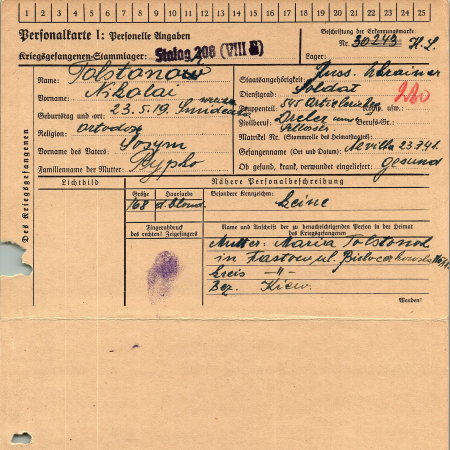 1 2 3 4 5 6 7 8 9 10 11 12 13 14 15 16 17 18 19 20 21 22 23 24 25
Personalkarte I: Personelle Angaben
Beschriftung der Erkennungsmarke
Nr. 30243
Kriegsgefangenen-Stammlager: Stalag 308 (VIII E)
Lager: H. L.
Des Kriegsgefangenen
Name: Tolstanow
Vorname: Nikolai
Geburtstag und -ort: 23.5.19.
Religion: ortodox
Vorname des Vaters: Josym
Familienname der Mutter: Rypko
Staatsangehörigkeit: Russ. Ukrainer
Dienstgrad: Soldat
Truppenteil: 545 Komp. usw.
Zivilberuf: Dreher und Schlosser Berufs-Gr.:
Matrikel Nr. (Stammrolle des Heimatstaates):
Gefangennahme (Ort und Datum): 23.7.41.
Ob gesund, krank, verwundet eingeliefert: gesund
220
Lichtbild
Nähere Personalbeschreibung
Größe Haarfarbe Besondere Kennzeichen:
168 d. blond keine
Fingerabdruck
des rechten! Zeigefingers
Name und Anschrift der zu benachrichtigenden Person in der Heimat
des Kriegsgefangenen
Mutter: Maria Tolstonok
in Fastow, ul.
kreis -"-
Bez. Kiew.
Wenden!